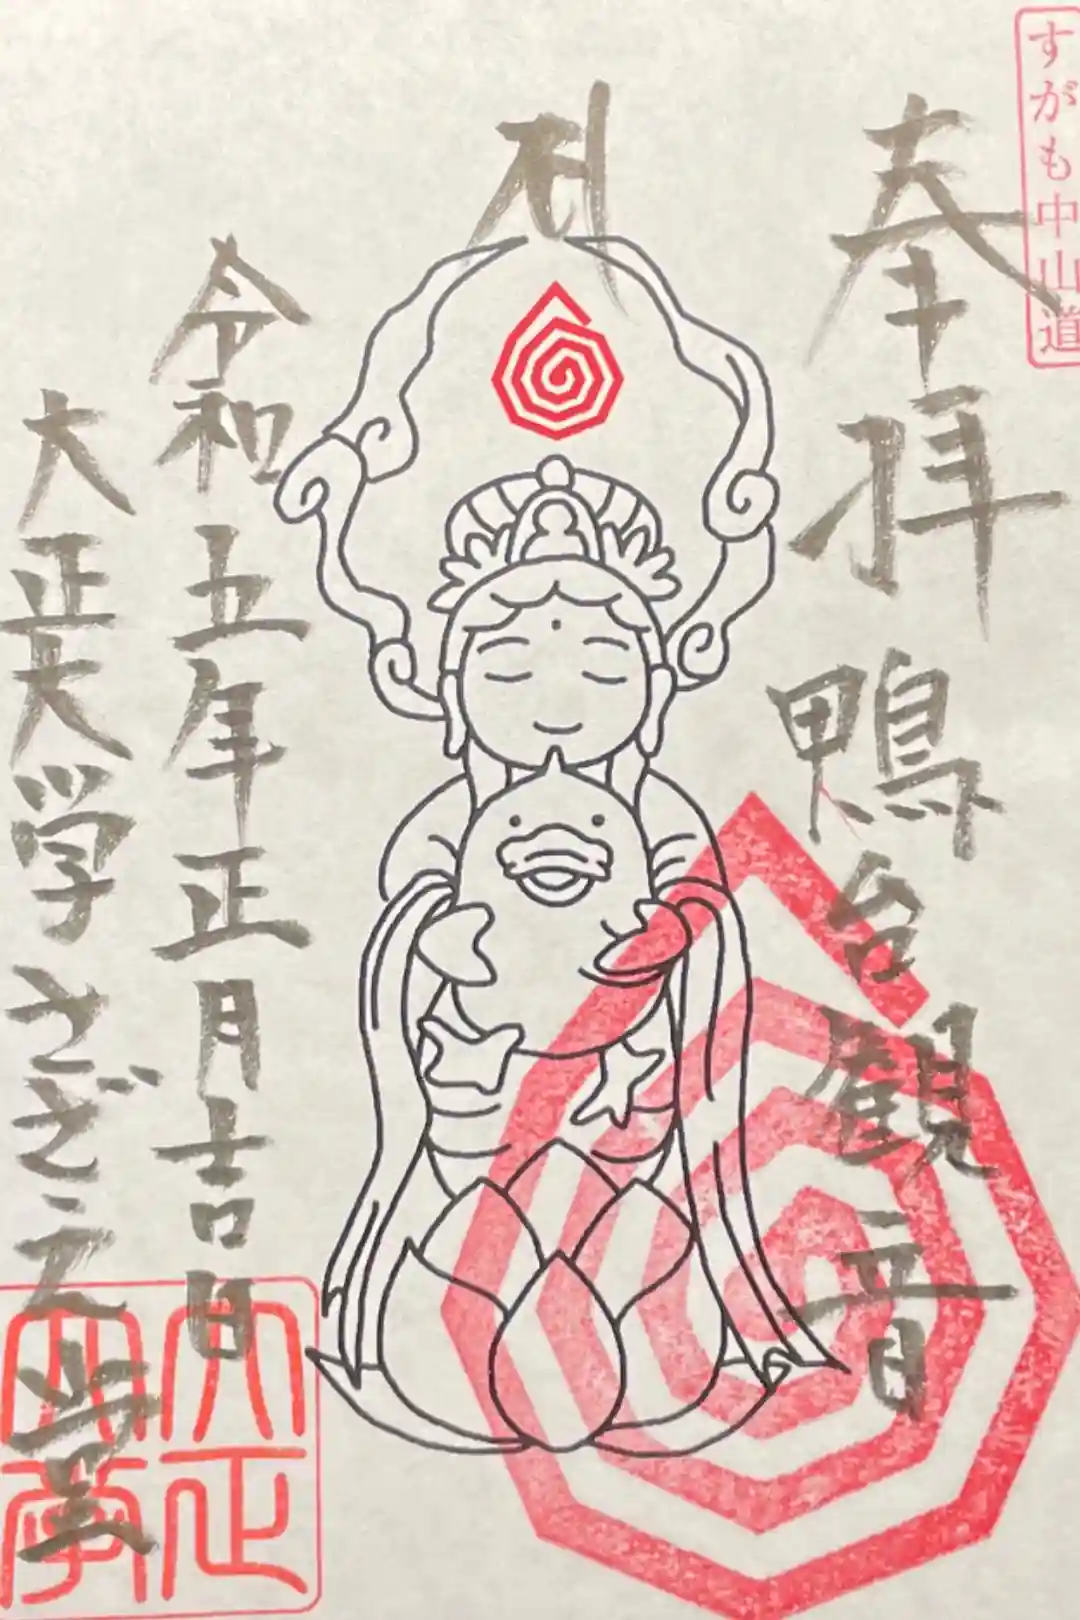 すがも中山道
奉拝
鴨台観音
令和五年正月吉日
大正大学さざえ堂
大正
大学